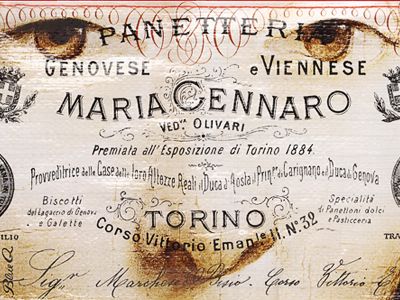 PANETTERIA
GENOVESE e VIENNESE
MARIA GENNARO
VED.ª OLIVARI
Premiata all'Esposizione di Torino 1884.
Provveditrice delle Case delle loro Altezze Reali il Duca d'Aosta il Prin.pe di Carignano e il Duca di Genova
Biscotti
del Lagaccio di Genova
e Galette
Specialità
di Panettoni dolci
e Pasticceria
TORINO
Corso Vittorio Emanuele II. N.º 32
ILIO
TRA
Sig.r Marchese Corso Vittorio E